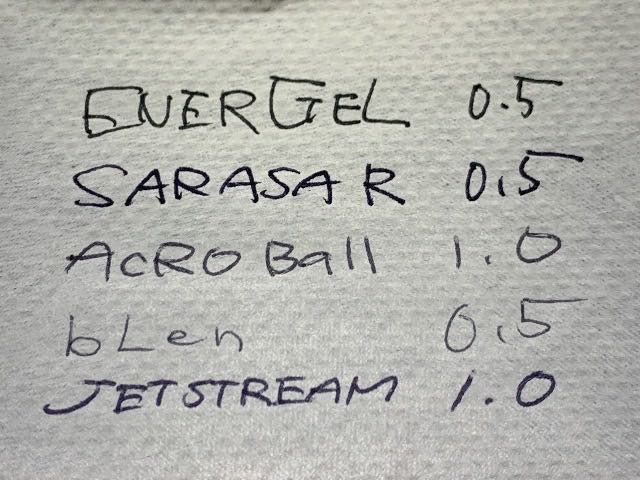 ENERGEL 0.5
SARASA R 0.5
ACRO Ball 1.0
bLen 0.5
JETSTREAM 1.0